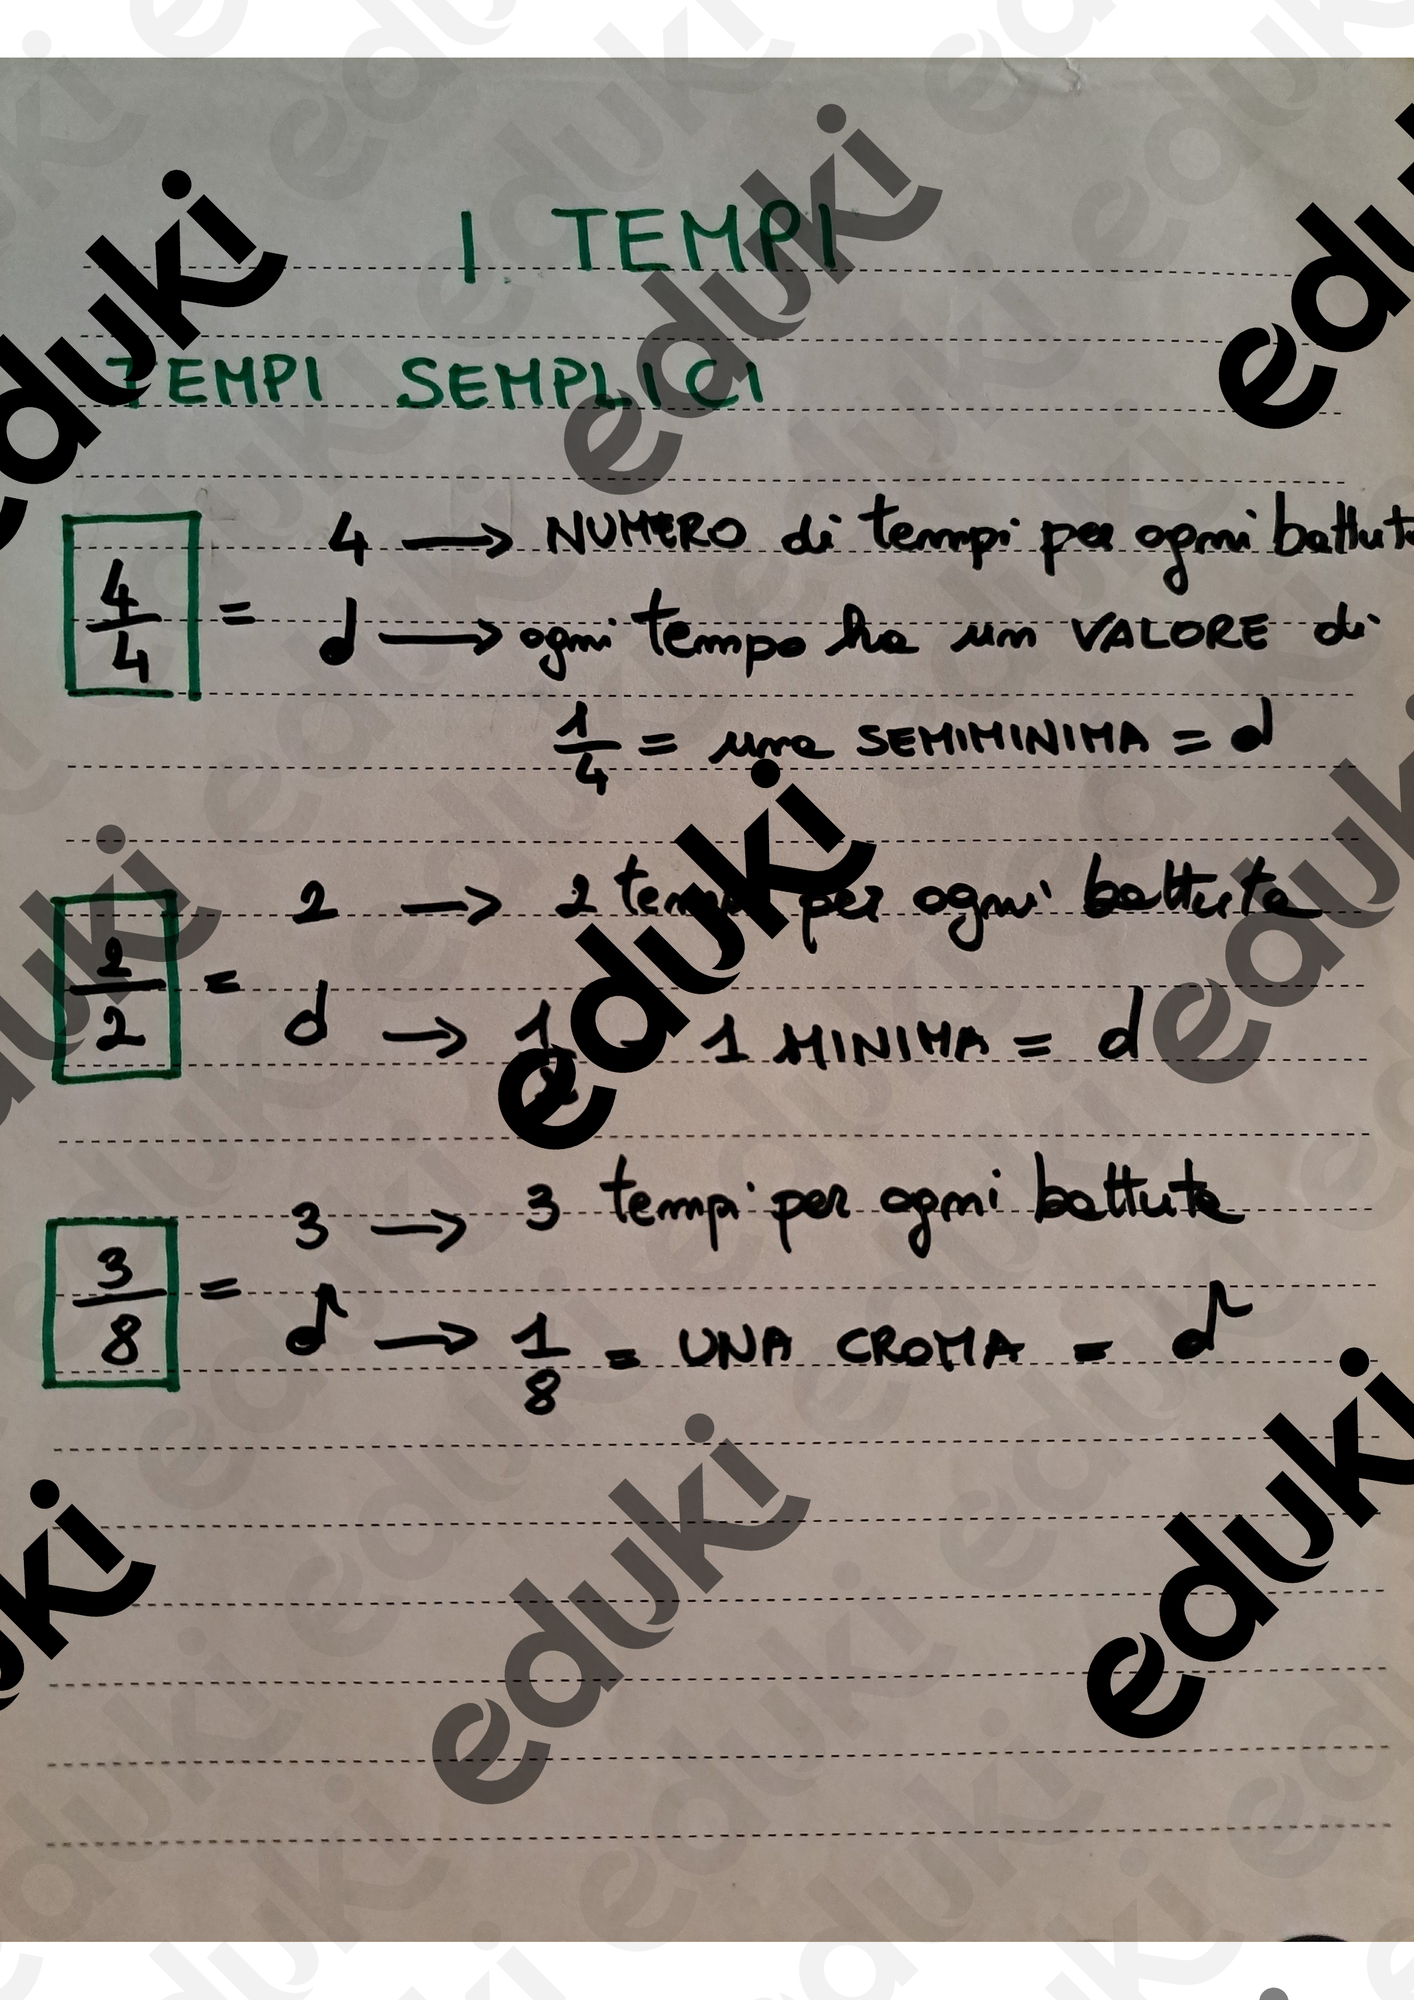 I TEMPI
TEMPI SEMPLICI
4/4 = 4 → NUMERO di tempi per ogni battuta
♩ → ogni tempo ha un VALORE di
1/4 = una SEMIMINIMA = ♩
2/2 = 2 → 2 tempi per ogni battuta
𝅗𝅥 → 1/2 = 1 MINIMA = 𝅗𝅥
3/8 = 3 → 3 tempi per ogni battuta
♪ → 1/8 = UNA CROMA = ♪
eduki
eduki
eduki
eduki
eduki
eduki
eduki
eduki
eduki